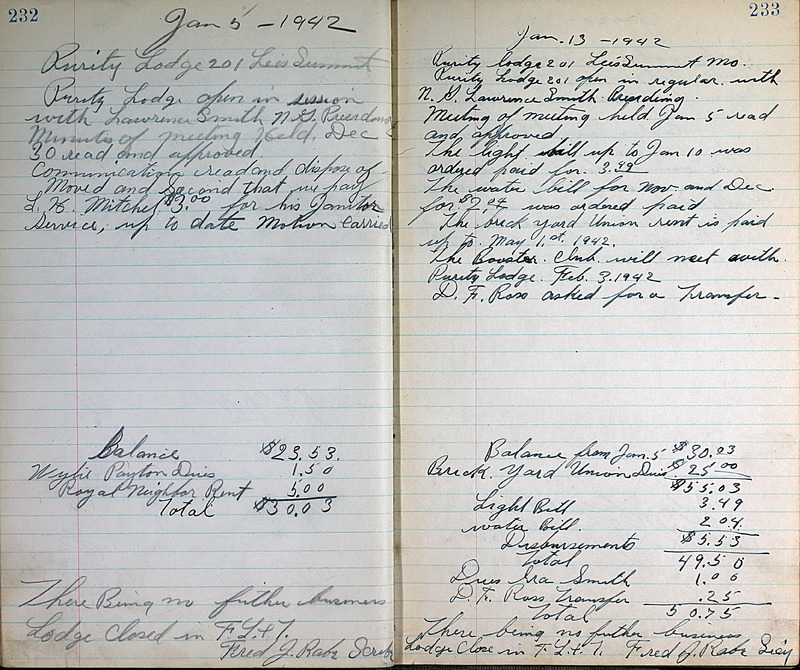 232
Jan 5 - 1942
Purity Lodge 201 Lees Summit
Purity Lodge open in session
with Lawrence Smith N.G. Presiding
Minuts of meeting Held. Dec
30 read and approved
Communication read and dispose of
Moved and Second that we pay
L. H. Mitchel $3.00 for his Janitor
Service, up to date Motion Carried
Balance $23.53.
Wylie Payton Dues 1.50
Royal Neighbor Rent 5.00
Total $30.03
There Being no futher business
Lodge Closed in F.L.&T.
Fred J. Rabe Scribe
233
Jan. 13 - 1942
Purity lodge 201 Lees Summit Mo.
Purity Lodge 201 open in regular with
N. G. Lawrence Smith Presiding.
Meeting of meeting held Jan 5 read
and approved.
The light bill up to Jan 10 was
ordered paid for. 3.49
The water bill for Nov. and Dec
for $2.04 was ordered paid
The brick yard Union rent is paid
up to May 1st, 1942.
The Booster Club will meet with
Purity Lodge. Feb. 3. 1942
D. F. Ross asked for a Transfer -
Balance from Jan. 5 $30.03
Brick Yard Union Dues $25.00
$55.03
Light Bill 3.49
water Bill. 2.04
Disbursements $5.53
Total 49.50
Dues Ira Smith 1.00
D. F. Ross Transfer .25
Total 50.75
There being no futher business
Lodge Close in F. L. & T. Fred J. Rabe Sec'y